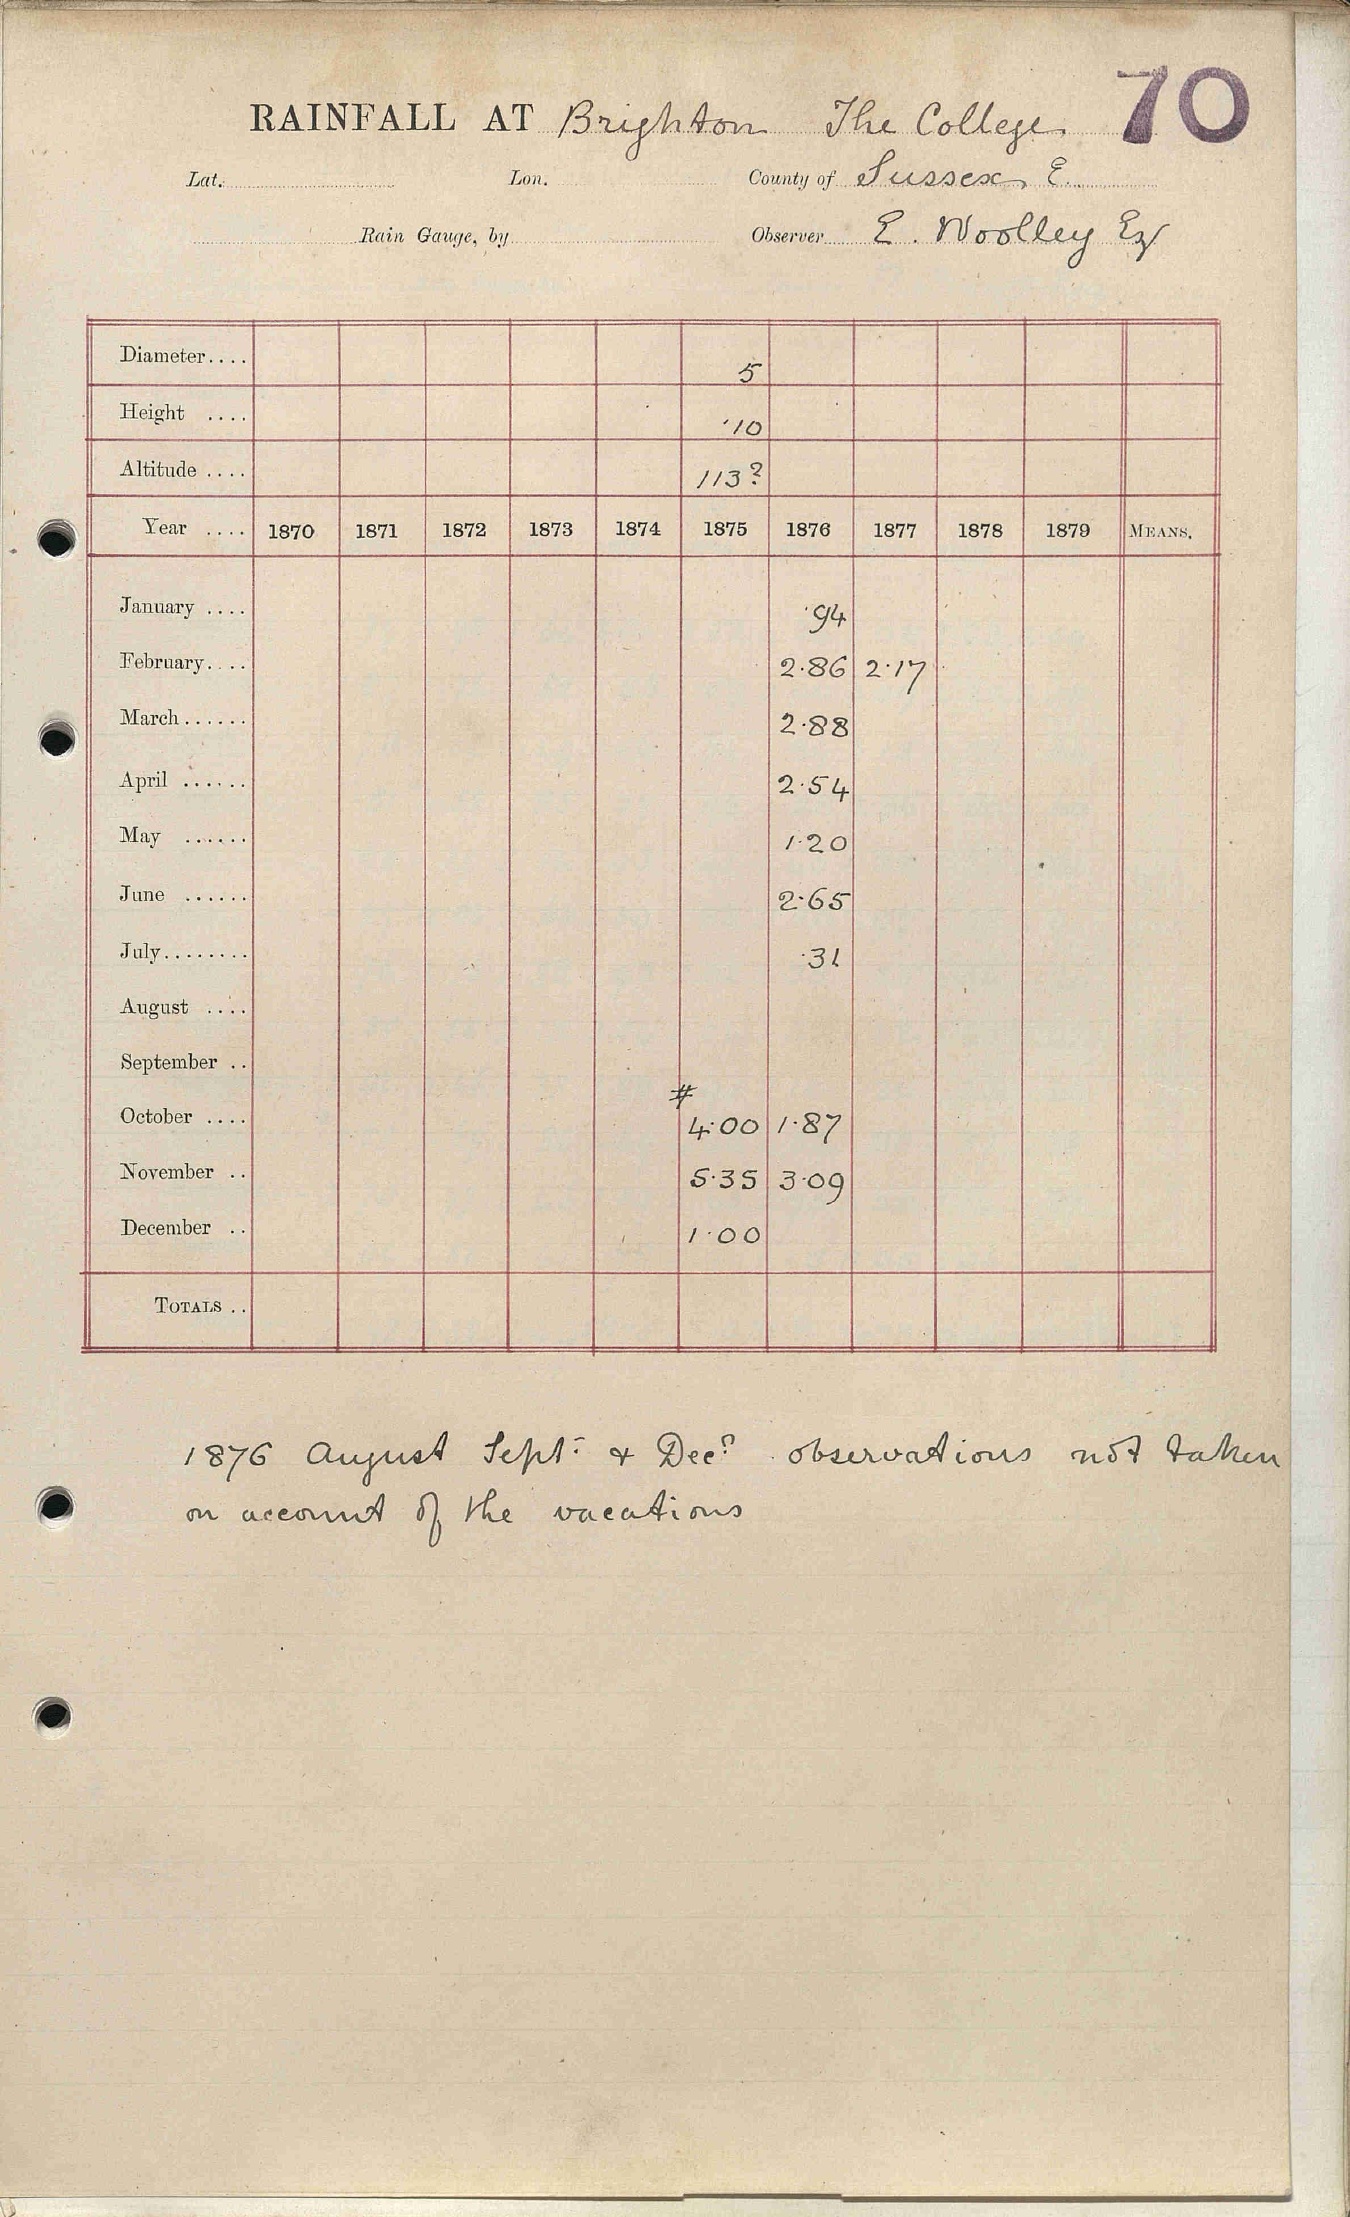 70
RAINFALL AT Brighton The College
Lat. Lon. County of Sussex E.
Rain Gauge, by Observer E. Woolley Esq
Diameter.... 5
Height .... ·10
Altitude .... 113?
Year .... 1870 1871 1872 1873 1874 1875 1876 1877 1878 1879 MEANS.
January .... ·94
February.... 2·86 2·17
March...... 2·88
April ...... 2·54
May ...... 1·20
June ...... 2·65
July........ ·31
August ....
September ..
#
October .... 4·00 1·87
November .. 5·35 3·09
December .. 1·00
TOTALS ..
1876 August Sept. & Decr. observations not taken
on account of the vacations